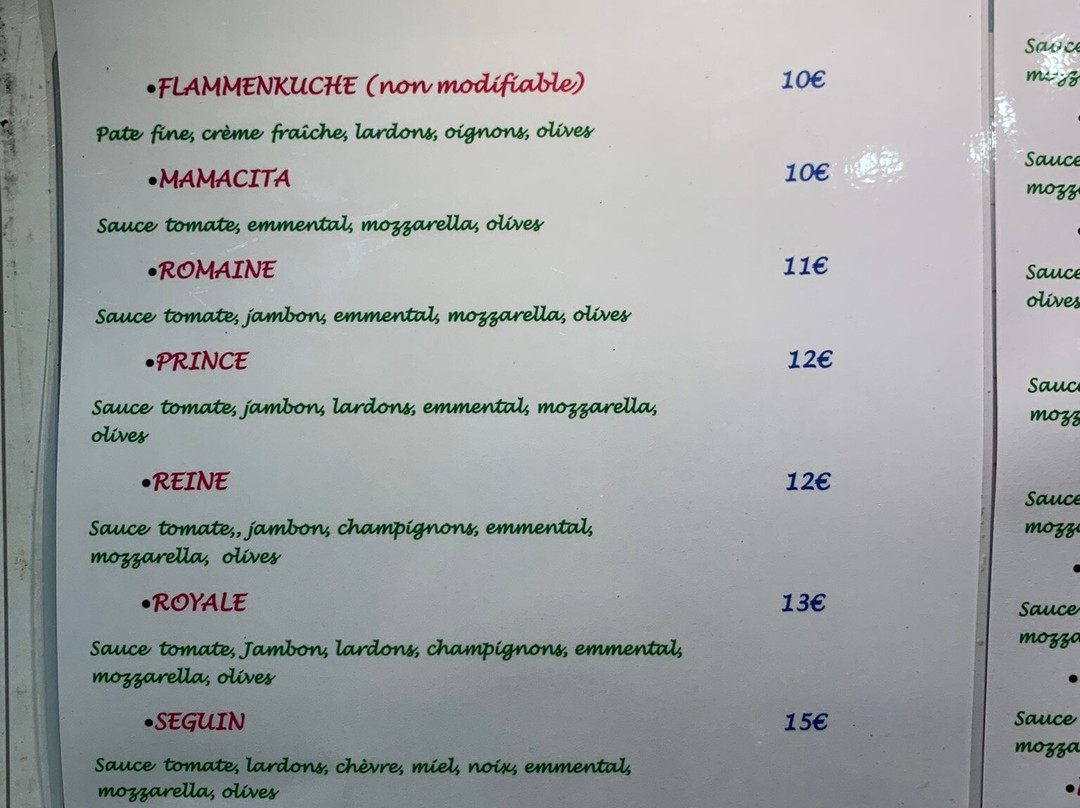 •FLAMMENKUCHE (non modifiable) 10€
Pate fine, crème fraîche, lardons, oignons, olives
•MAMACITA 10€
Sauce tomate, emmental, mozzarella, olives
•ROMAINE 11€
Sauce tomate, jambon, emmental, mozzarella, olives
•PRINCE 12€
Sauce tomate, jambon, lardons, emmental, mozzarella,
olives
•REINE 12€
Sauce tomate,, jambon, champignons, emmental,
mozzarella, olives
•ROYALE 13€
Sauce tomate, Jambon, lardons, champignons, emmental,
mozzarella, olives
•SEGUIN 15€
Sauce tomate, lardons, chèvre, miel, noix, emmental,
mozzarella, olives
Sauce
Sauce
Sauce
olives
Sauce
Sauce
Sauce
Sauce